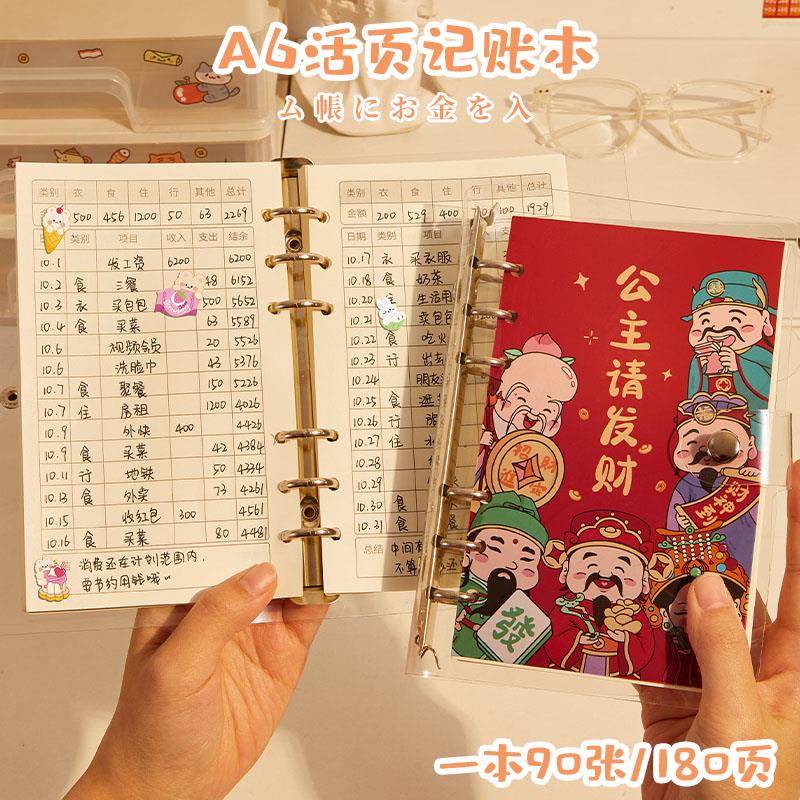 A6活页记账本
ム帳にお金を入
类别 衣 食 住 行 其他 总计
500 456 1200 50 63 2269
类别 项目 收入 支出 结余
10.1 发工资 6200 6200
10.2 食 三餐 48 6152
10.3 衣 买包包 500 5652
10.4 食 买菜 63 5589
10.6 视频会员 20 5526
10.6 洗脸巾 43 5376
10.7 食 聚餐 150 5226
10.7 住 房租 1200 4026
10.9 外快 400 4426
10.9 食 买菜 42 4384
10.11 行 地铁 50 4334
10.13 食 外卖 73 4261
10.15 收红包 300 4561
10.16 食 买菜 80 4481
消费还在计划范围内,
要节约用钱哦~
类别 衣 食 住 行 其他 总计
金额 200 529 400 100 1929
日期 类别 项目
10.17 衣 买衣服
10.18 食 奶茶
10.20 生活用
10.21 卖包包
10.22 食 吃火
10.23 行 出去
10.24 朋友
10.25 食 逛
10.26 行
10.27 住 水
10.28
10.29
10.30 食
10.31 食
总结 中间有
不算 还
公主请发财
招财
进宝
财神到
發
一本90张/180页